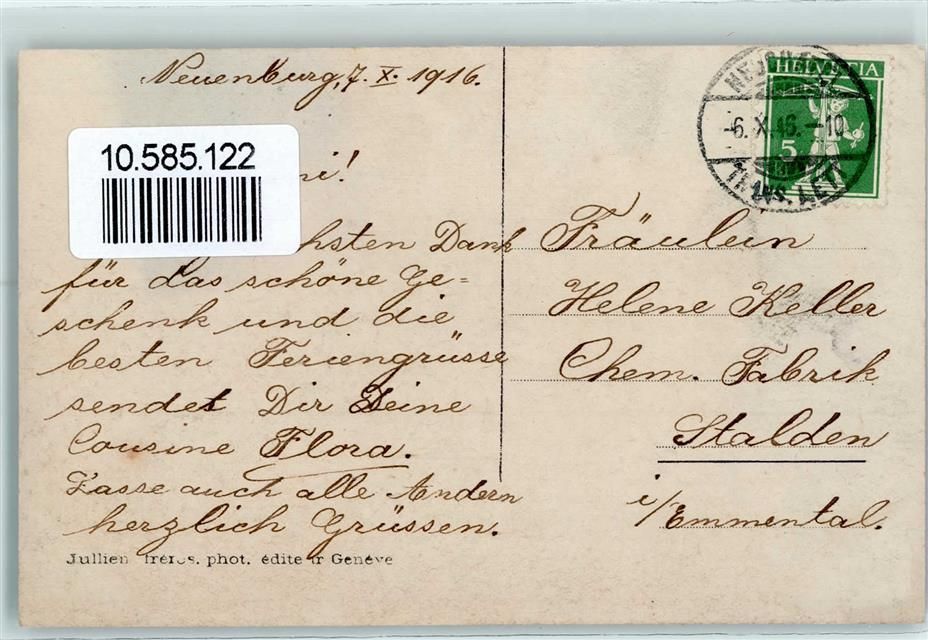 Neuenburg, 7. X. 1916.
10.585.122
hsten Dank
für das schöne Ge=
schenk und die
besten Feriengrüsse
sendet Dir Deine
Cousine Flora.
Lasse auch alle Andern
herzlich Grüssen.
Jullien frères. phot. éditeur Genève
HELVETIA
5
-6. X. 16. -10
Fräulein
Helene Keller
Chem. Fabrik
Stalden
i/Emmental.